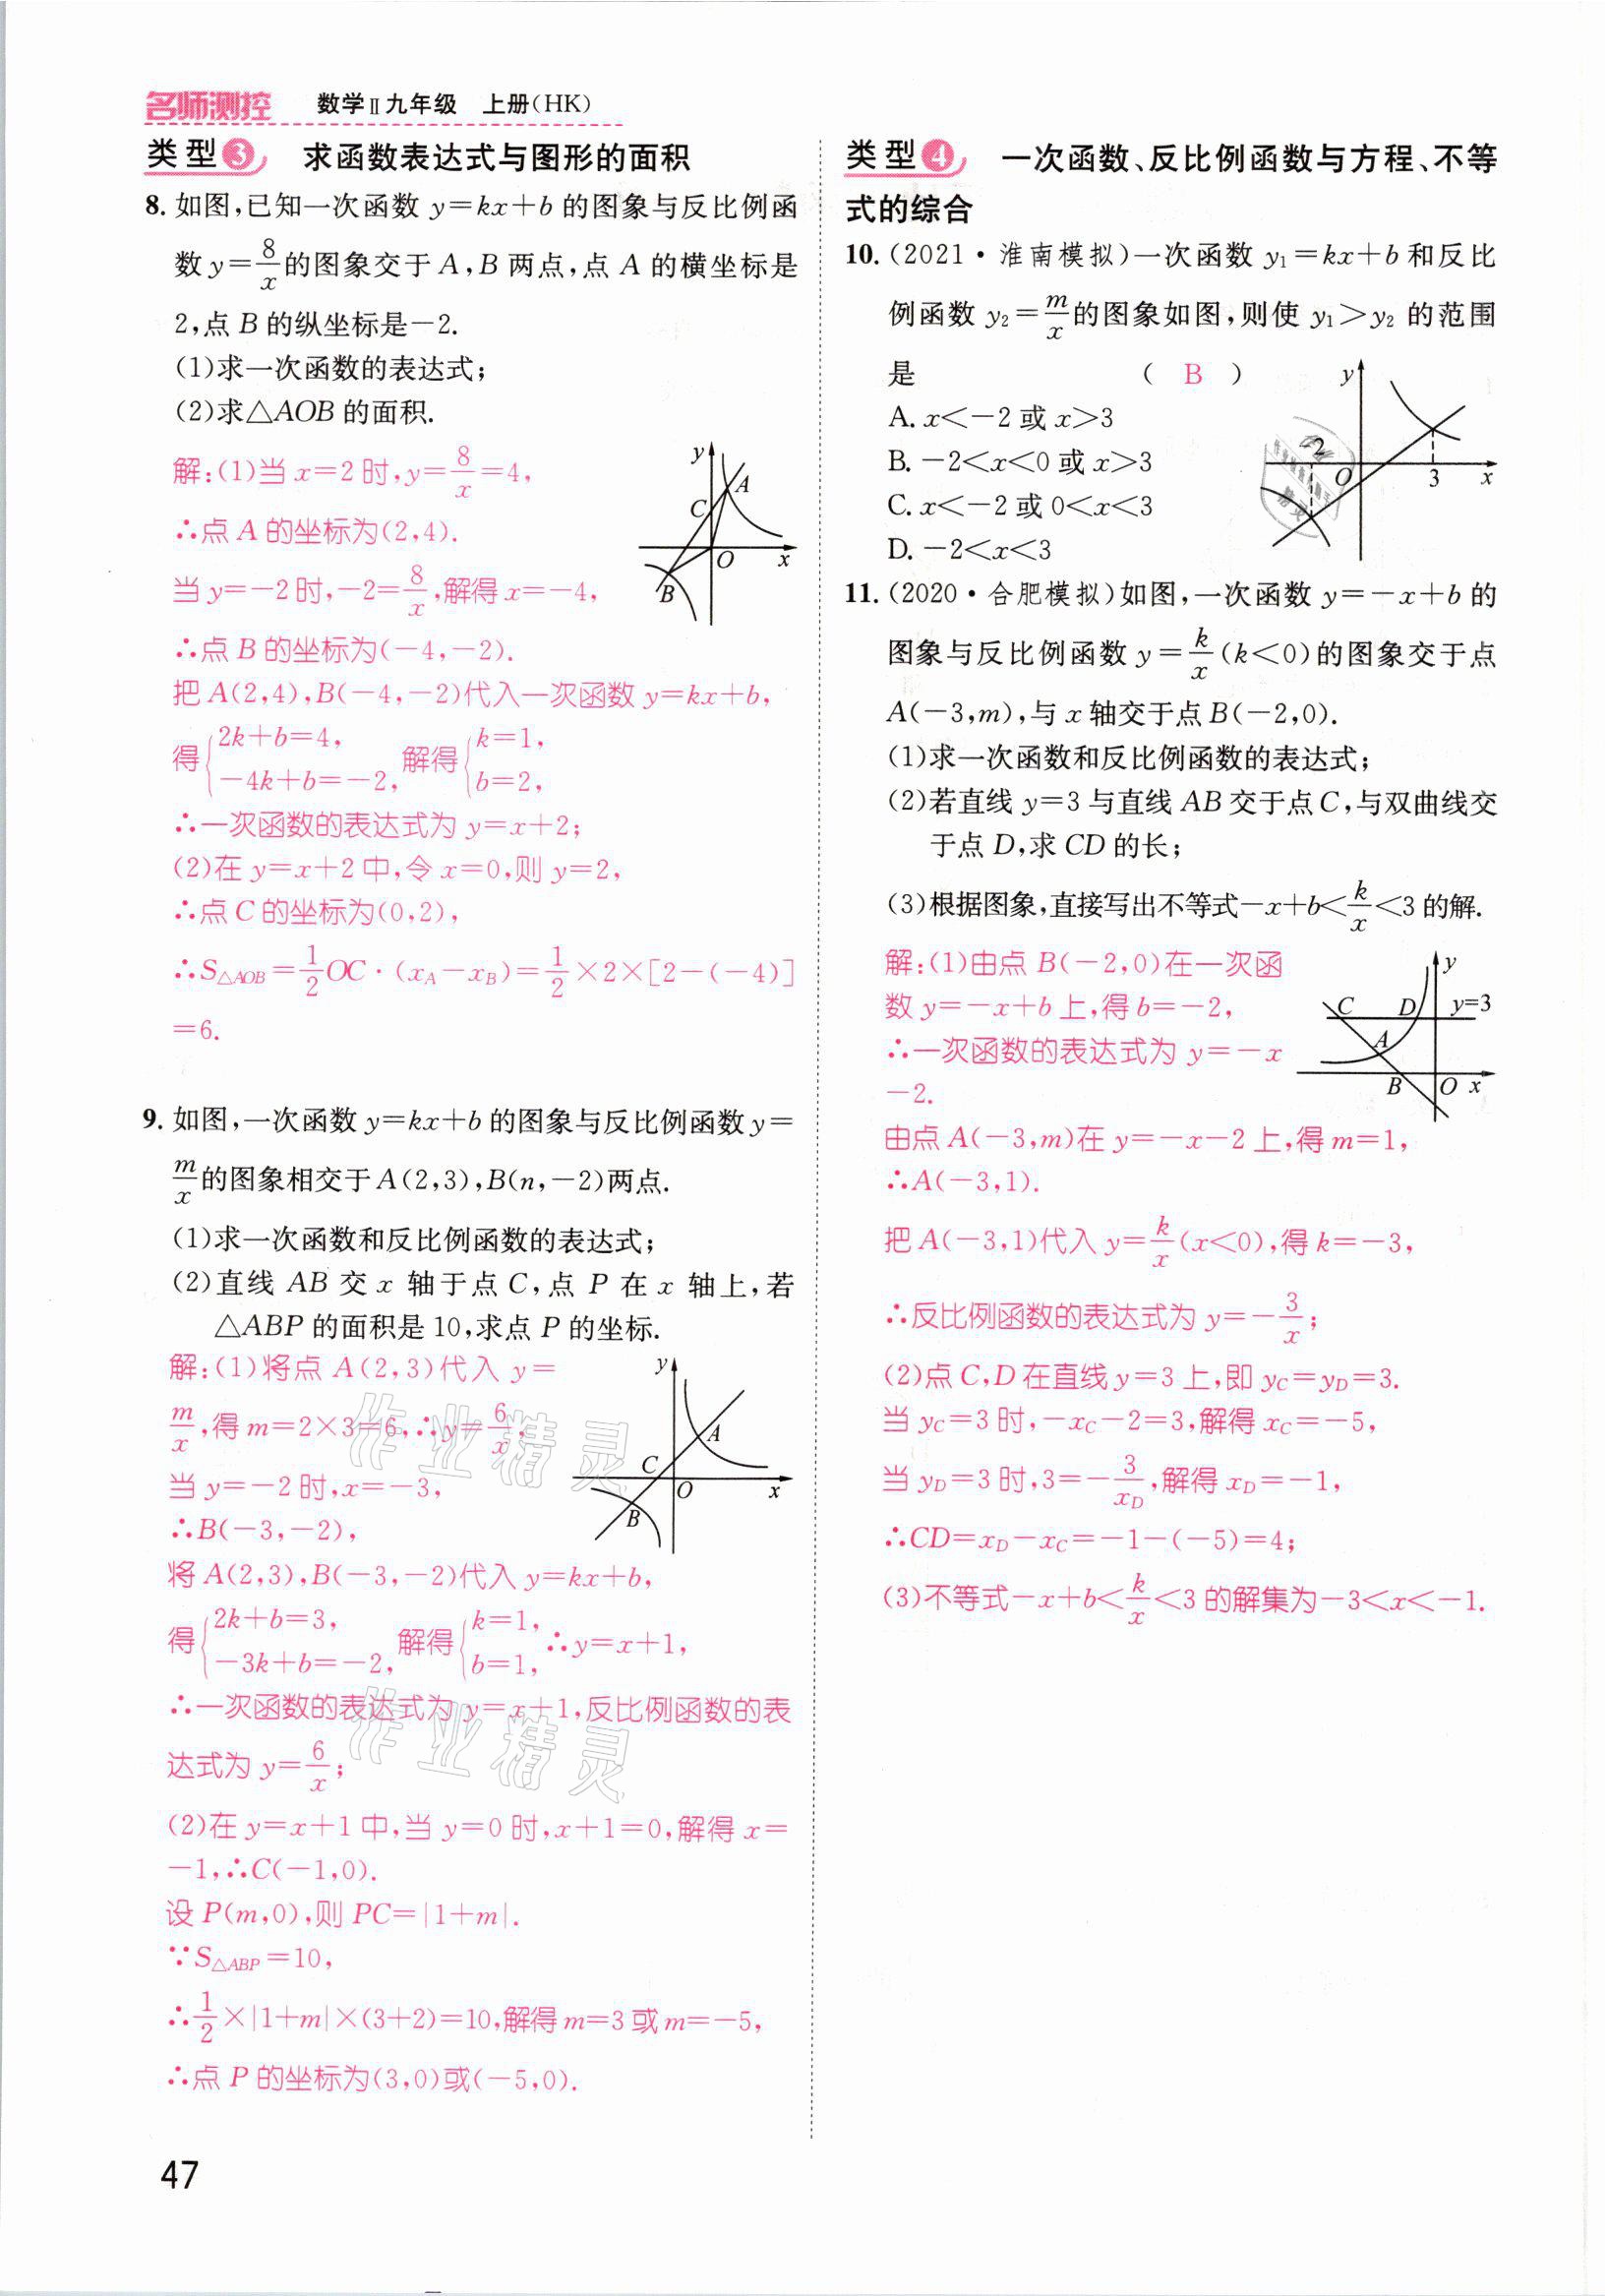 名师测控 数学Ⅱ九年级 上册(HK)
类型3 求函数表达式与图形的面积
8. 如图,已知一次函数 y=kx+b 的图象与反比例函
数 y=8/x 的图象交于 A,B 两点,点 A 的横坐标是
2,点 B 的纵坐标是-2.
(1)求一次函数的表达式;
(2)求△AOB 的面积.
解:(1)当 x=2 时,y=8/x=4,
∴点 A 的坐标为(2,4).
当 y=-2 时,-2=8/x,解得 x=-4,
∴点 B 的坐标为(-4,-2).
把 A(2,4),B(-4,-2)代入一次函数 y=kx+b,
得{2k+b=4, -4k+b=-2, 解得{k=1, b=2,
∴一次函数的表达式为 y=x+2;
(2)在 y=x+2 中,令 x=0,则 y=2,
∴点 C 的坐标为(0,2),
∴S△AOB=1/2 OC·(xA-xB)=1/2×2×[2-(-4)]
=6.
y A C O x B
9. 如图,一次函数 y=kx+b 的图象与反比例函数 y=
m/x 的图象相交于 A(2,3),B(n,-2)两点.
(1)求一次函数和反比例函数的表达式;
(2)直线 AB 交 x 轴于点 C,点 P 在 x 轴上,若
△ABP 的面积是 10,求点 P 的坐标.
解:(1)将点 A(2,3)代入 y=
m/x,得 m=2×3=6,∴y=6/x,
当 y=-2 时,x=-3,
∴B(-3,-2),
将 A(2,3),B(-3,-2)代入 y=kx+b,
得{2k+b=3, -3k+b=-2, 解得{k=1, b=1, ∴y=x+1,
∴一次函数的表达式为 y=x+1,反比例函数的表
达式为 y=6/x;
(2)在 y=x+1 中,当 y=0 时,x+1=0,解得 x=
-1,∴C(-1,0).
设 P(m,0),则 PC=|1+m|.
∵S△ABP=10,
∴1/2×|1+m|×(3+2)=10,解得 m=3 或 m=-5,
∴点 P 的坐标为(3,0)或(-5,0).
y A C O x B
作业精灵
作业精灵
47
类型4 一次函数、反比例函数与方程、不等
式的综合
10. (2021·淮南模拟)一次函数 y₁=kx+b 和反比
例函数 y₂=m/x 的图象如图,则使 y₁>y₂ 的范围
是 ( B )
A. x<-2 或 x>3
B. -2<x<0 或 x>3
C. x<-2 或 0<x<3
D. -2<x<3
y -2 O 3 x
11. (2020·合肥模拟)如图,一次函数 y=-x+b 的
图象与反比例函数 y=k/x(k<0)的图象交于点
A(-3,m),与 x 轴交于点 B(-2,0).
(1)求一次函数和反比例函数的表达式;
(2)若直线 y=3 与直线 AB 交于点 C,与双曲线交
于点 D,求 CD 的长;
(3)根据图象,直接写出不等式-x+b<k/x<3 的解.
解:(1)由点 B(-2,0)在一次函
数 y=-x+b 上,得 b=-2,
∴一次函数的表达式为 y=-x
-2.
由点 A(-3,m)在 y=-x-2 上,得 m=1,
∴A(-3,1).
把 A(-3,1)代入 y=k/x(x<0),得 k=-3,
∴反比例函数的表达式为 y=-3/x;
(2)点 C,D 在直线 y=3 上,即 yC=yD=3.
当 yC=3 时,-xC-2=3,解得 xC=-5,
当 yD=3 时,3=-3/xD,解得 xD=-1,
∴CD=xD-xC=-1-(-5)=4;
(3)不等式-x+b<k/x<3 的解集为-3<x<-1.
y C D y=3 A B O x